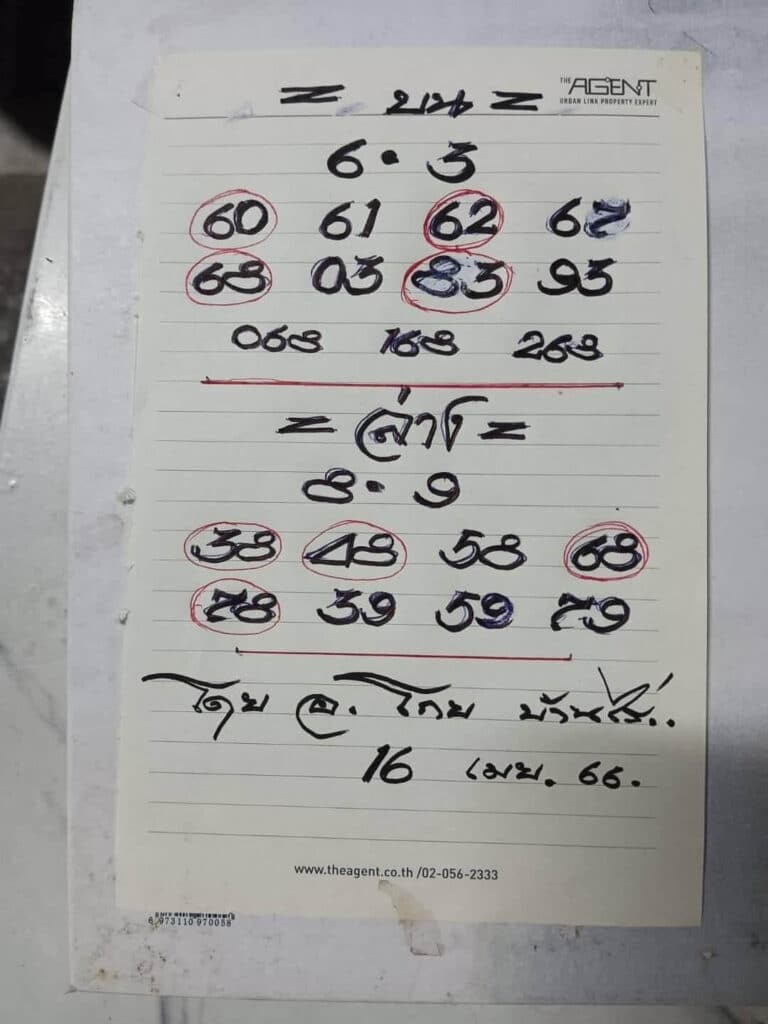 THE AGENT
URBAN LINK PROPERTY EXPERT
= บน =
6 • 3
60 61 62 67
68 03 83 93
068 168 268
= ล่าง =
8 • 9
38 48 58 68
78 39 59 79
โดย อ. โกย บ้านไร่..
16 เมย. 66.
www.theagent.co.th /02-056-2333
6 973110 970058